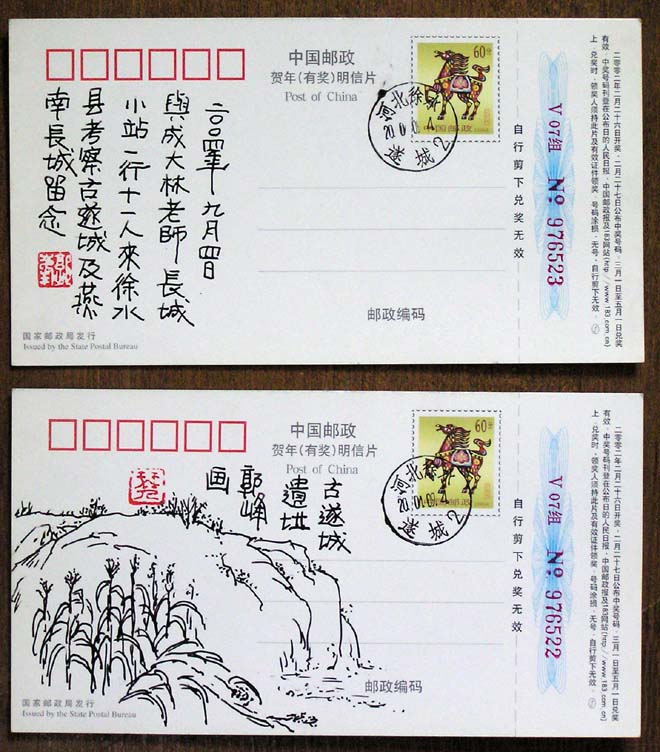 中国邮政
贺年(有奖)明信片
Post of China
60分
中国邮政
河北徐水
遂城
2
二〇〇四年九月四日
與成大林老師長城
小站一行十一人來徐水
县考察古遂城及燕
南長城留念
邮政编码
国家邮政局发行
Issued by the State Postal Bureau
自行剪下兑奖无效
V 07组 No 976523
二零零二年二月二十六日开奖．二月二十七日公布中奖号码．三月一日至五月一日兑奖
有效．中奖号码刊登在公布日的人民日报、中国邮政报及183网站(http://www.183.com.cn)
上．兑奖时，领奖人须持此片及有效证件领奖．号码涂损、无号、自行剪下无效．
中国邮政
贺年(有奖)明信片
Post of China
60分
中国邮政
河北徐水
遂城
2
古遂城
遺址
郭峰
画
邮政编码
国家邮政局发行
Issued by the State Postal Bureau
自行剪下兑奖无效
V 07组 No 976522
二零零二年二月二十六日开奖．二月二十七日公布中奖号码．三月一日至五月一日兑奖
有效．中奖号码刊登在公布日的人民日报、中国邮政报及183网站(http://www.183.com.cn)
上．兑奖时，领奖人须持此片及有效证件领奖．号码涂损、无号、自行剪下无效．